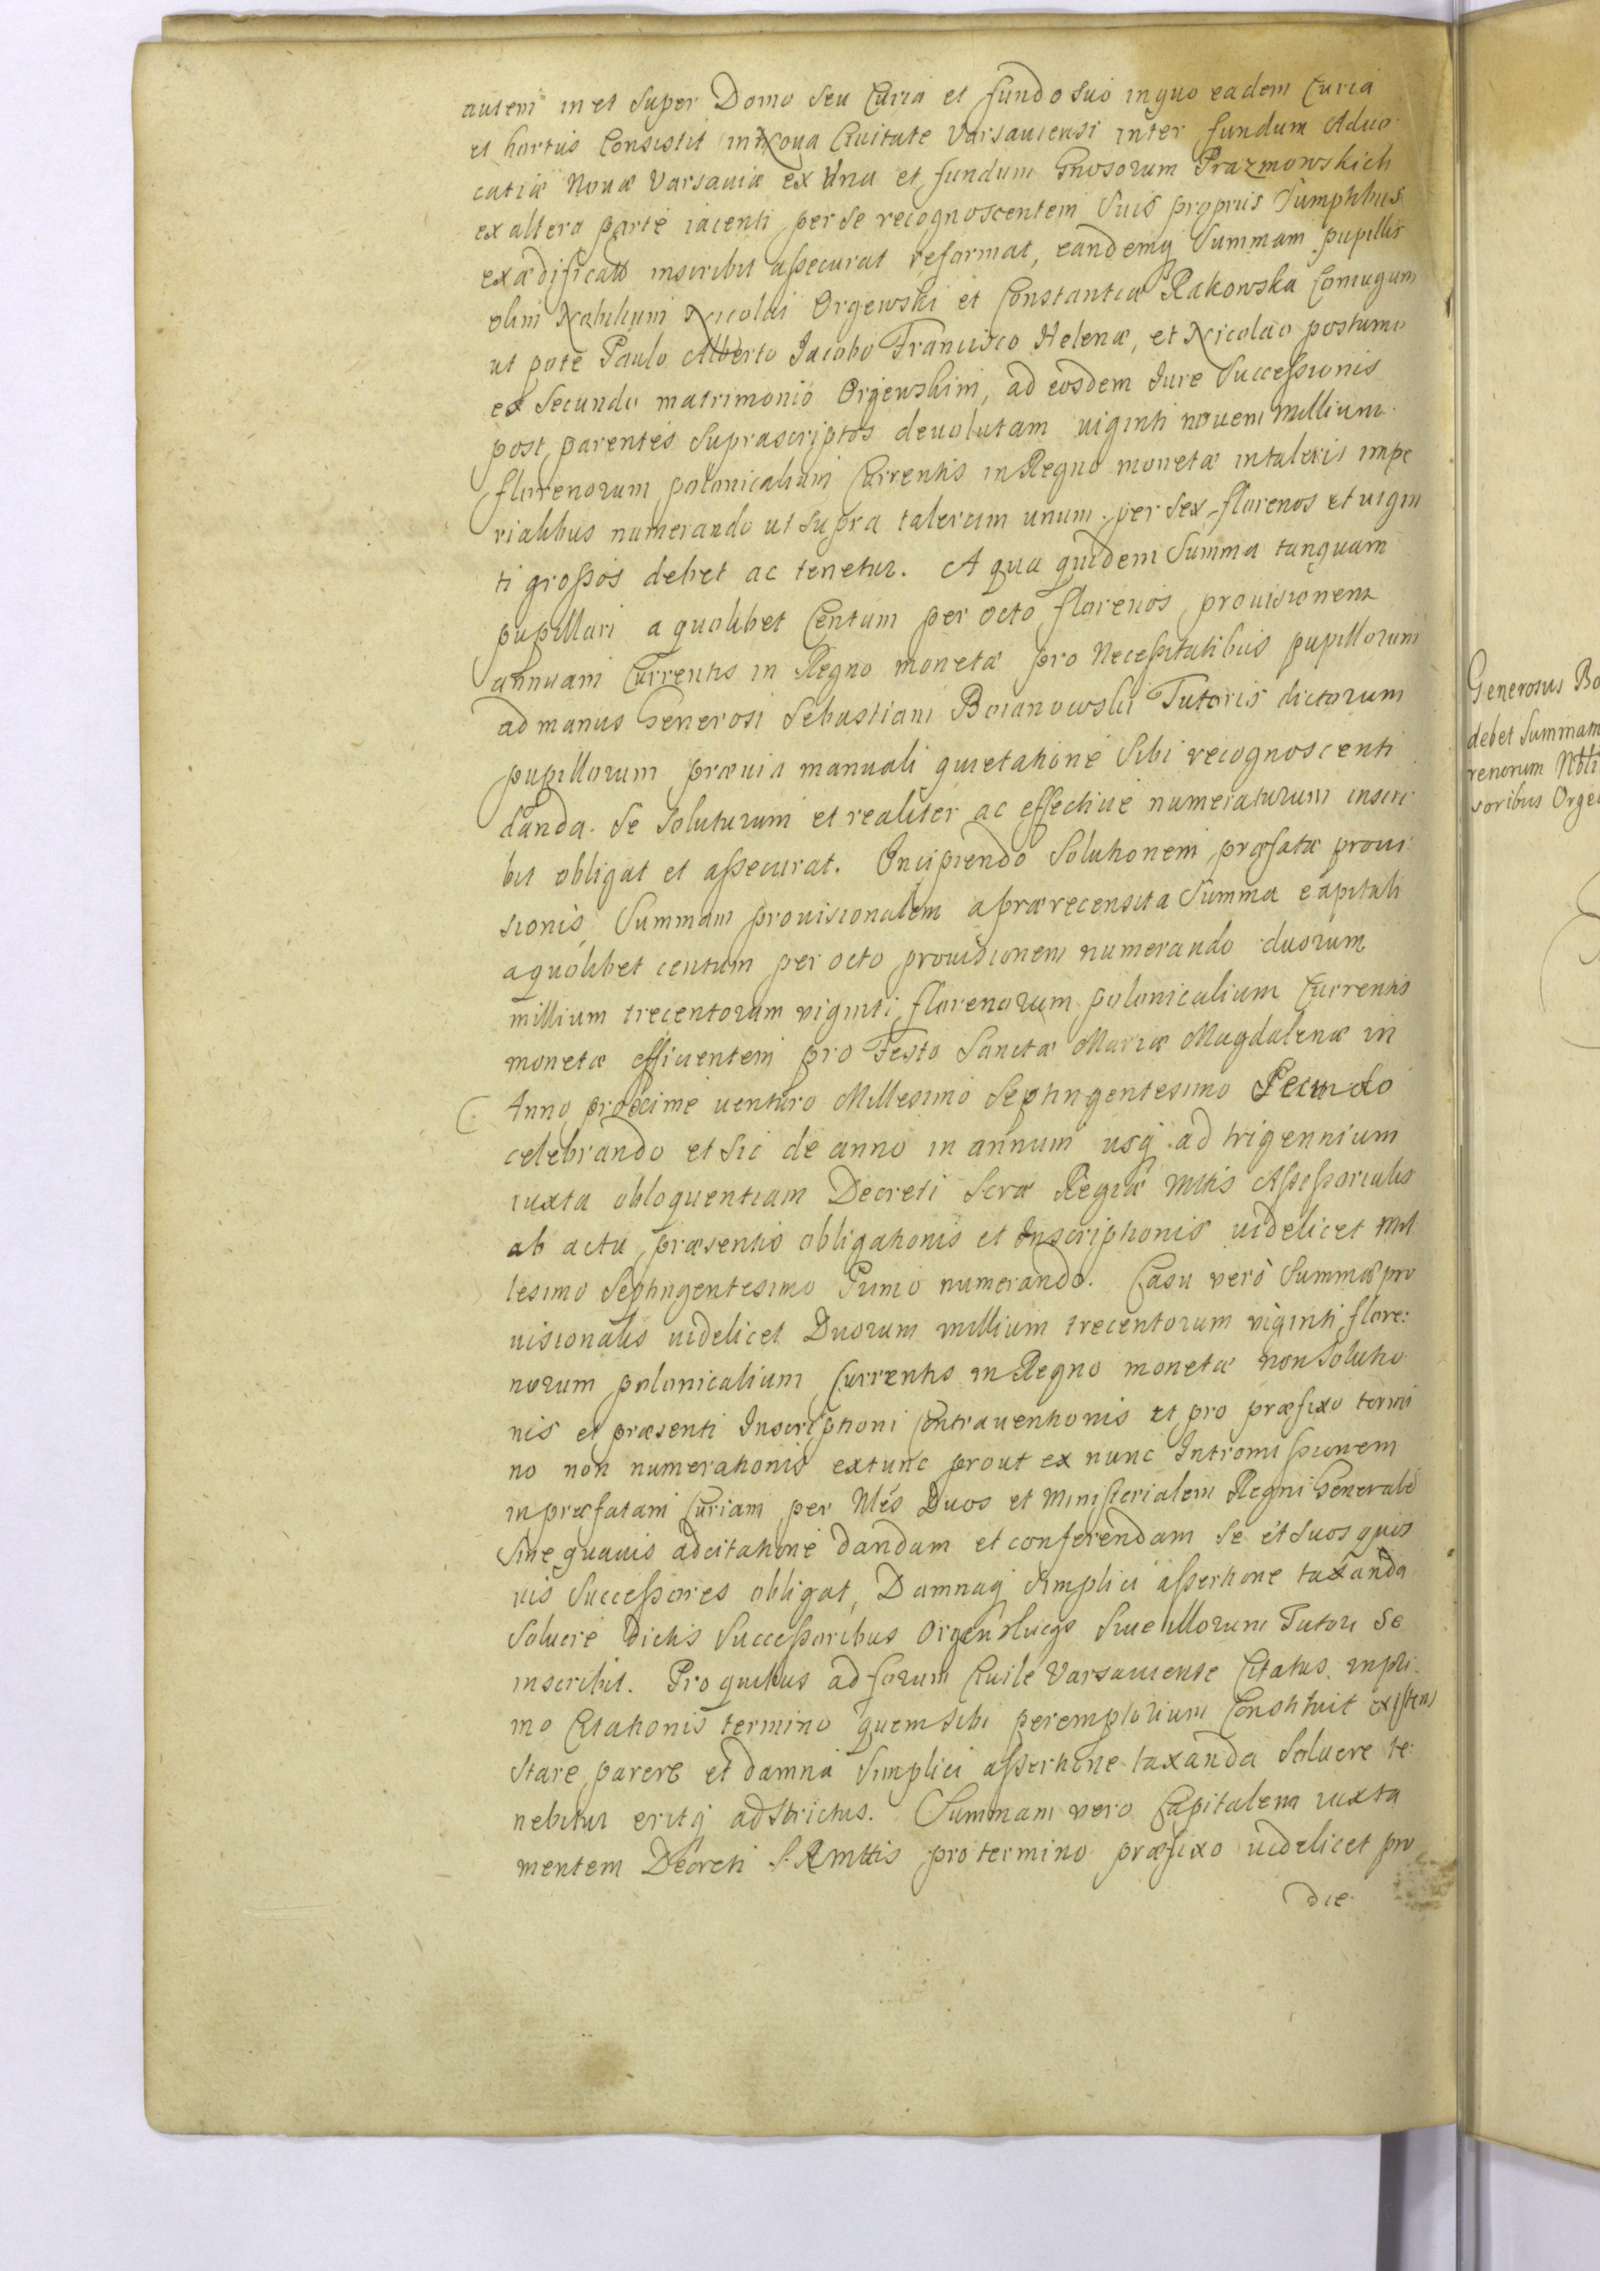 autem in et super Domo seu Curia et fundo suo in quo eadem Curia
et hortus Consistit in Noua Ciuitate Varsauiensi inter fundum Aduo
catiæ Nouæ Varsauiæ ex Una et fundum Gnosorum Prazmowskich
ex altera parte iacenti per se recognoscentem suis propriis sumptibus
exædificata inscribit assecurat reformat, eandemq summam pupillis
olim Nobilium Nicolai Orgewski et Constantiæ Rakowska Coniugum
ut pote Paulo Alberto Jacobo Francisco Helenæ, et Nicolao postumo
ex secundo matrimonio Orgewskim, ad eosdem Jure Successionis
post parentes suprascriptos deuolutam uiginti nouem millium
florenorum polonicalium Currentis in Regno monetæ in taleris impe
rialibus numerando ut supra talerum unum per sex florenos et uigin
ti grossos debet ac tenetur. A qua quidem Summa tanquam
pupillari a quolibet Centum per octo florenos prouisionem
annuam Currentis in Regno monetæ pro Necessitatibus pupillorum
ad manus Generosi Sebastiani Boianowski Tutoris dictorum
pupillorum præuia manuali quietatione sibi recognoscenti
danda. se soluturum et realiter ac effectiue numeraturum inscri
bit obligat et assecurat. Incipiendo Solutionem præfatæ proui
sionis, Summam prouisionalem a prærecensita Summa capitali
a quolibet centum per octo prouisionem numerando duorum
millium trecentorum viginti florenorum polonicalium Currentis
monetæ efficientem pro Festo Sanctæ Mariæ Magdalenæ in
Anno proxime uenturo Millesimo Septingentesimo Secundo
celebrando et sic de anno in annum usq ad trigennium
iuxta obloquentiam Decreti Scræ Regiæ Mttis Assessorialis
ab actu præsentis obligationis et Inscriptionis uidelicet Mil
lesimo Septingentesimo Primo numerando. Casu verò Summæ pro
uisionalis uidelicet Duorum millium trecentorum viginti flore:
norum polonicalium Currentis in Regno monetæ non solutio
nis et præsenti Inscriptioni Contrauentionis et pro præfixo termi
no non numerationis extunc prout ex nunc Intromissionem
in præfatam Curiam per Nles Duos et Ministerialem Regni Generale
sine quauis adcitatione dandam et conferendam se et suos quos
uis Successores obligat, Damnaq simplici assertione taxanda
soluere dictis Successoribus siue illorum Tutori se
inscribit. Pro quibus ad forum Ciuile Varsauiense Citatus in pri
mo Citationis termino quem sibi peremptorium Constituit existens
stare parere et damna simplici assertione taxanda soluere te
nebitur eritq adstrictus. Summam vero Capitalem iuxta
mentem Decreti S. R Mttis pro termino præfixo uidelicet pro
die
Generosus Bo
debet Summam
renorum Nbli
soribus Orge